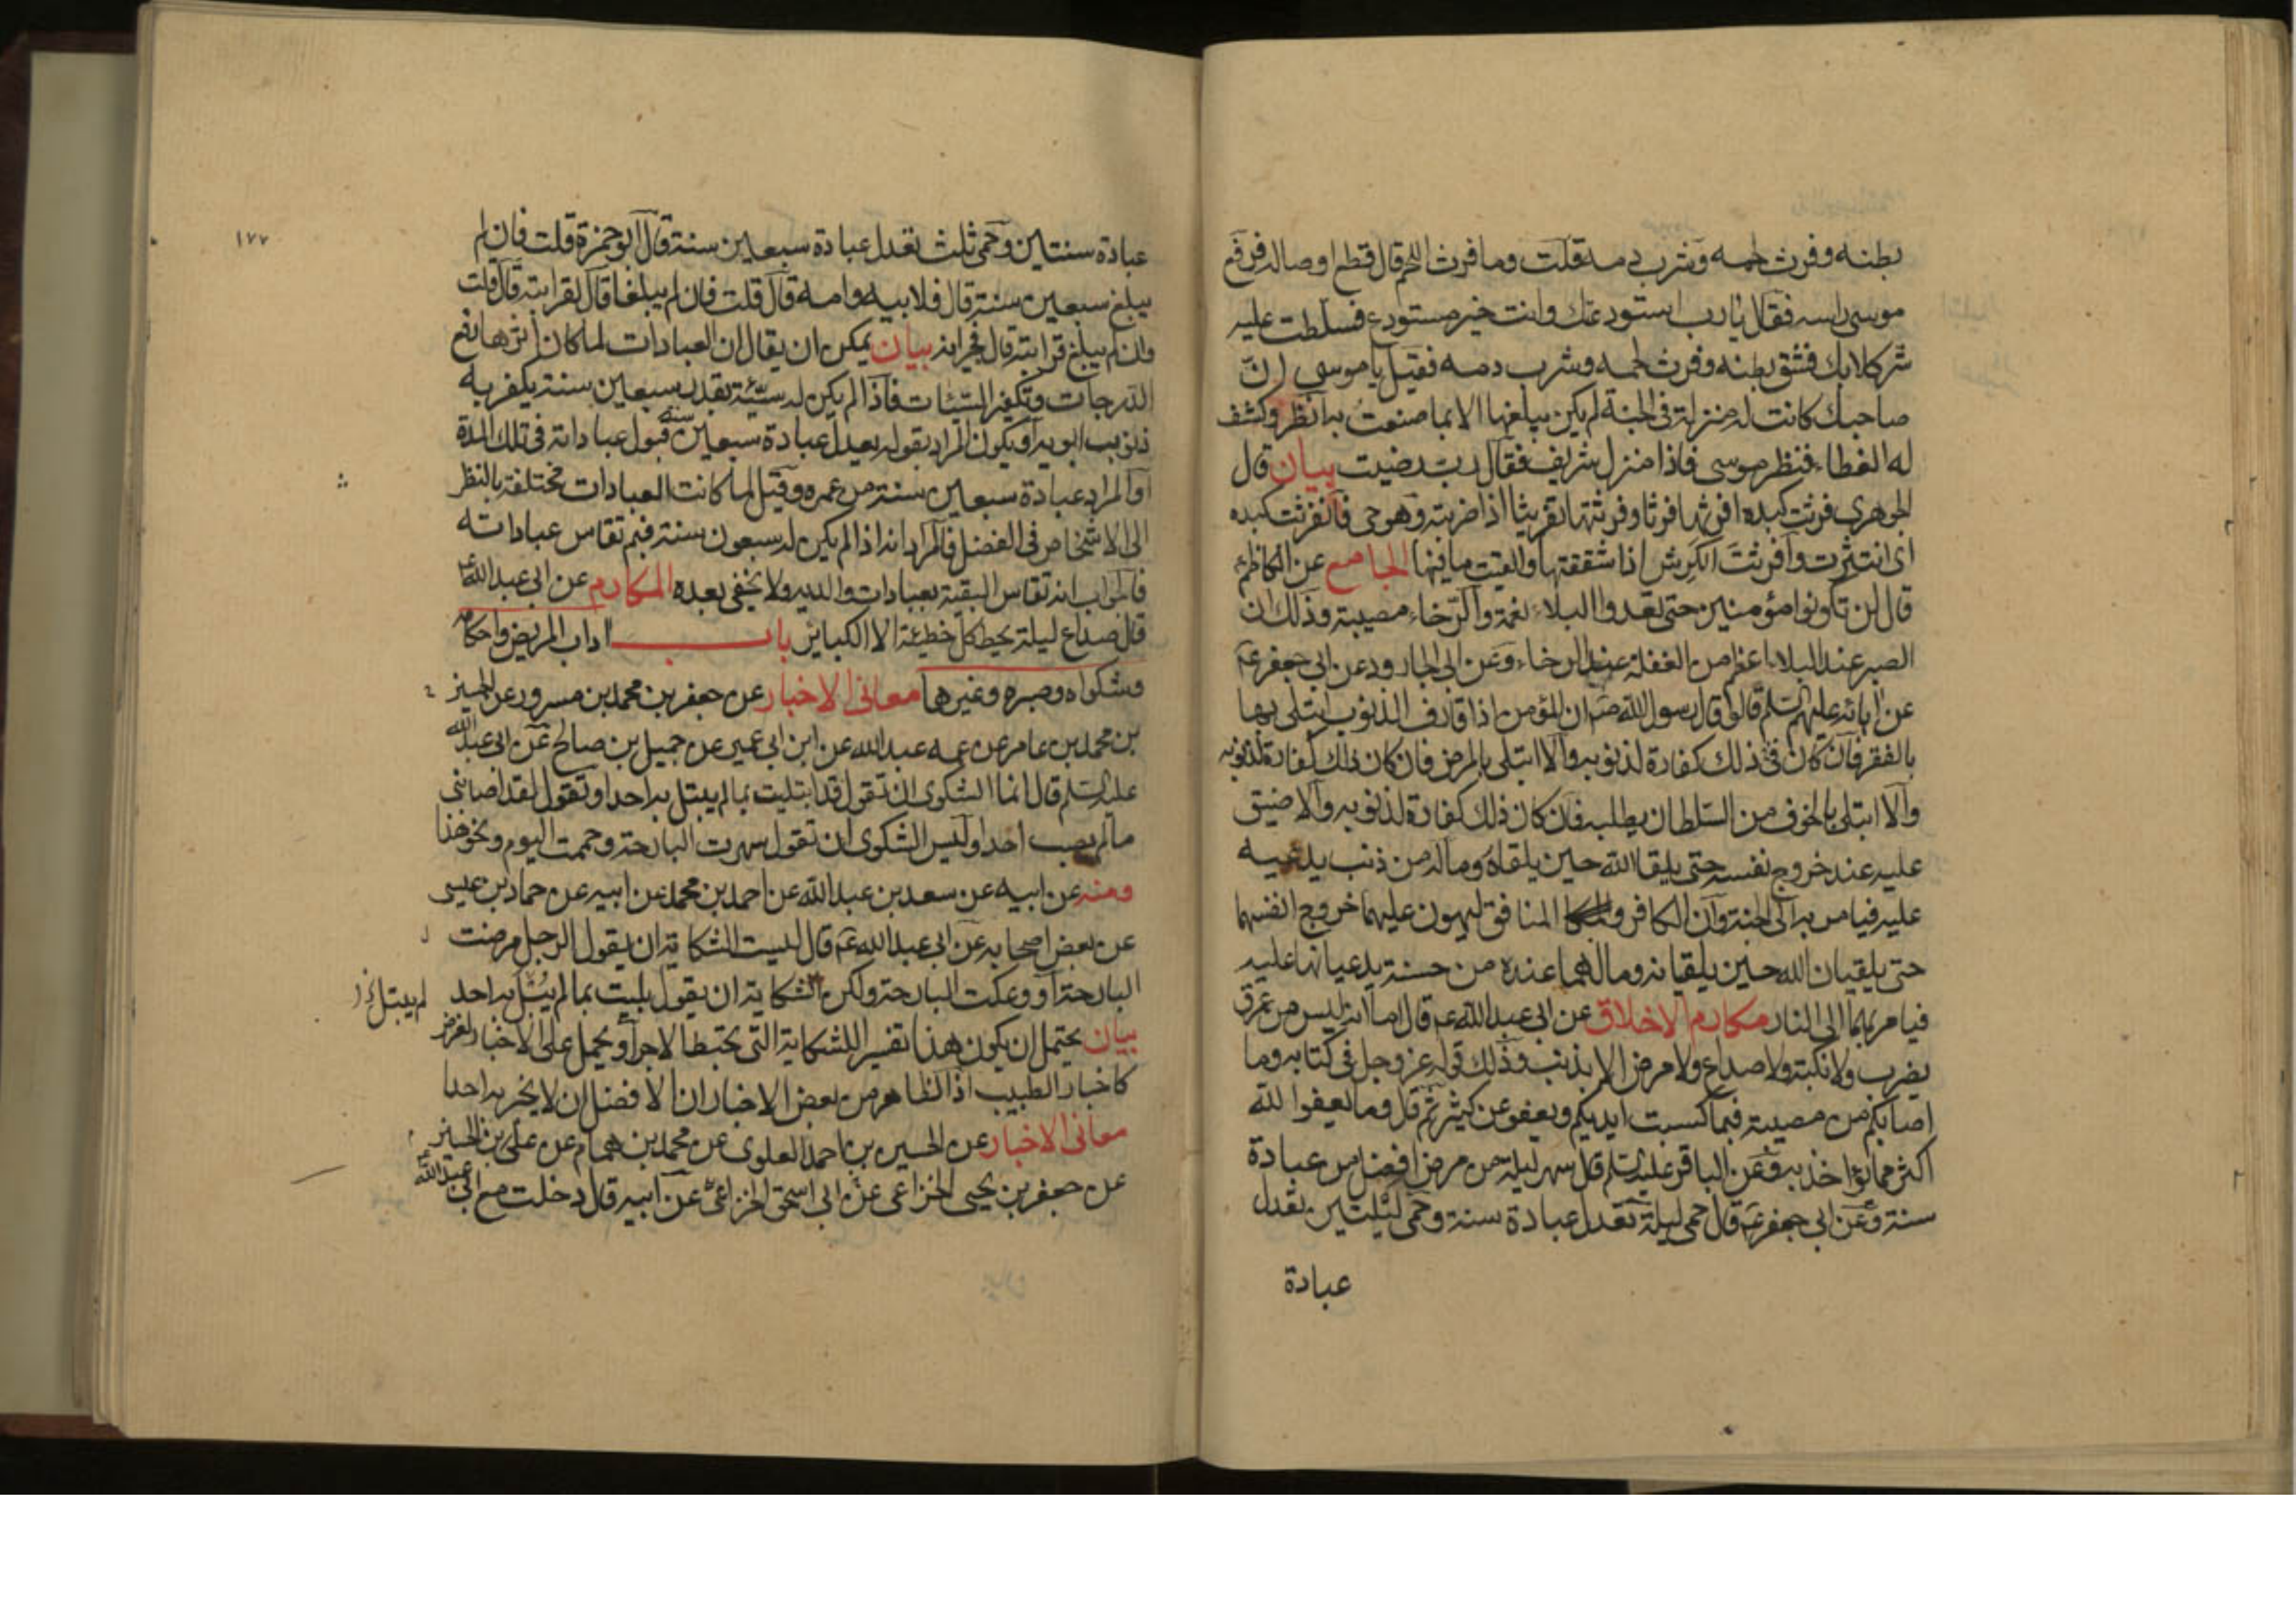 بطنه وفرث لحمه وشرب دمه قلت وما فرث اللحم قال قطع اوصاله فرفع
موسى راسه فقال يا رب استودعتك وانت خير مستودع فسلطت عليه
شر كلابك فشق بطنه وفرث لحمه وشرب دمه فقيل يا موسى ان
صاحبك كانت له منزلة في الجنة لم يكن يبلغها الا بما صنعت به انظر وكشف
له الغطاء فنظر موسى فاذا منزل شريف فقال رب رضيت بيان قال
الجوهري فرثت كبده افرثها فرثا وفرثتها تفريثا اذا ضربته وهو حي فانفرثت كبده
اى انتثرت وافرثت الكرش اذا شققتها والقيت ما فيها الجامع عن الكاظم ع
قال لن تكونوا مؤمنين حتى تعدوا البلاء نعمة والرخاء مصيبة وذلك ان
الصبر عند البلاء اعظم من الغفلة عند الرخاء وعن ابى الجارود عن ابى جعفر ع
عن ابائه عليهم السلم قالوا قال رسول الله ص ان المؤمن اذا قارف الذنوب ابتلى بها
بالفقر فان كان في ذلك كفارة لذنوبه والا ابتلى بالمرض فان كان ذلك كفارة لذنوبه
والا ابتلى بالخوف من السلطان يطلبه فان كان ذلك كفارة لذنوبه والا ضيق
عليه عند خروج نفسه حتى يلقا الله حين يلقاه وماله من ذنب يدعيه
عليه فيامر به الى الجنة وان الكافر و المنافق ليهون عليهما خروج انفسهما
حتى يلقيان الله حين يلقيانه وما لهما عنده من حسنة يدعيانها عليه
فيامر بهما الى النار مكارم الاخلاق عن ابى عبدالله ع قال اما انه ليس من عرق
يضرب ولا نكبة ولا صداع ولا مرض الا بذنب وذلك قوله عز وجل في كتابه وما
اصابكم من مصيبة فبما كسبت ايديكم ويعفو عن كثير ثم قال وما يعفوا لله
اكثر مما يؤاخذ به وعن الباقر عليه السلم قال سهر ليلة من مرض افضل من عبادة
سنة وعن ابي جعفر ع قال حمى ليلة تعدل عبادة سنة وحمى ليلتين تعدل
عبادة
١٧٧
عبادة سنتين وحمى ثلث تعدل عبادة سبعين سنة قال ابو حمزة قلت فان لم
يبلغ سبعين سنة قال فلابيه وامه قال قلت فان لم يبلغا قال لقرابته قال قلت
وان لم يبلغ قرابته قال فجيرانه بيان يمكن ان يقال ان العبادات لما كان اثرها رفع
الدرجات وتكفير السيئات فاذا لم يكن له سيئة بقدر سبعين سنة يكفر به
ذنوب ابويه او يكون المراد بقوله يعدل عبادة سبعين سنة قبول عباداته في تلك المدة
او المراد عبادة سبعين سنة من عمره وقيل لما كانت العبادات مختلفة بالنظر
الى الاشخاص في الفضل فالمراد انه اذا لم يكن له سبعون سنة فبم تقاس عباداته
فالجواب انه تقاس البقية بعبادات والديه ولا يخفى بعده المكارم عن ابى عبدالله ع
قال صداع ليلة يحط كل خطيئة الا الكباير باب اداب المريض واحكامه
وشكواه وصبره وغيرها معاني الاخبار عن جعفر بن محمد بن مسرور عن الحسين
بن محمد بن عامر عن عمه عبدالله عن ابن ابى عمير عن جميل بن صالح عن ابى عبدالله
عليه السلم قال انما الشكوى ان تقول قد ابتليت بما لم يبتل به احد او تقول لقد اصابنى
ما لم يصب احدا وليس الشكوى ان تقول سهرت البارحة وحممت اليوم ونحو هذا
ومنه عن ابيه عن سعد بن عبد الله عن احمد بن محمد عن ابيه عن حماد بن عيسى
عن بعض اصحابه عن ابى عبدالله ع قال ليست الشكاية ان يقول الرجل مرضت
البارحة او وعكت البارحة ولكن الشكاية ان يقول بليت بما لم يبل به احد
لم يبتل
بيان يحتمل ان يكون هذا تفسيرا للشكاية التى تحبط الاجر او يحمل على الاخبار لغرض
كاخبار الطبيب اذ الظاهر من بعض الاخبار ان الافضل ان لا يخبر به احدا
معانى الاخبار عن الحسين بن احمد العلوى عن محمد بن همام عن على بن الحسين
عن جعفر بن يحيى الخزاعى عن ابى اسحق الخزاعى عن ابيه قال دخلت مع ابى عبدالله